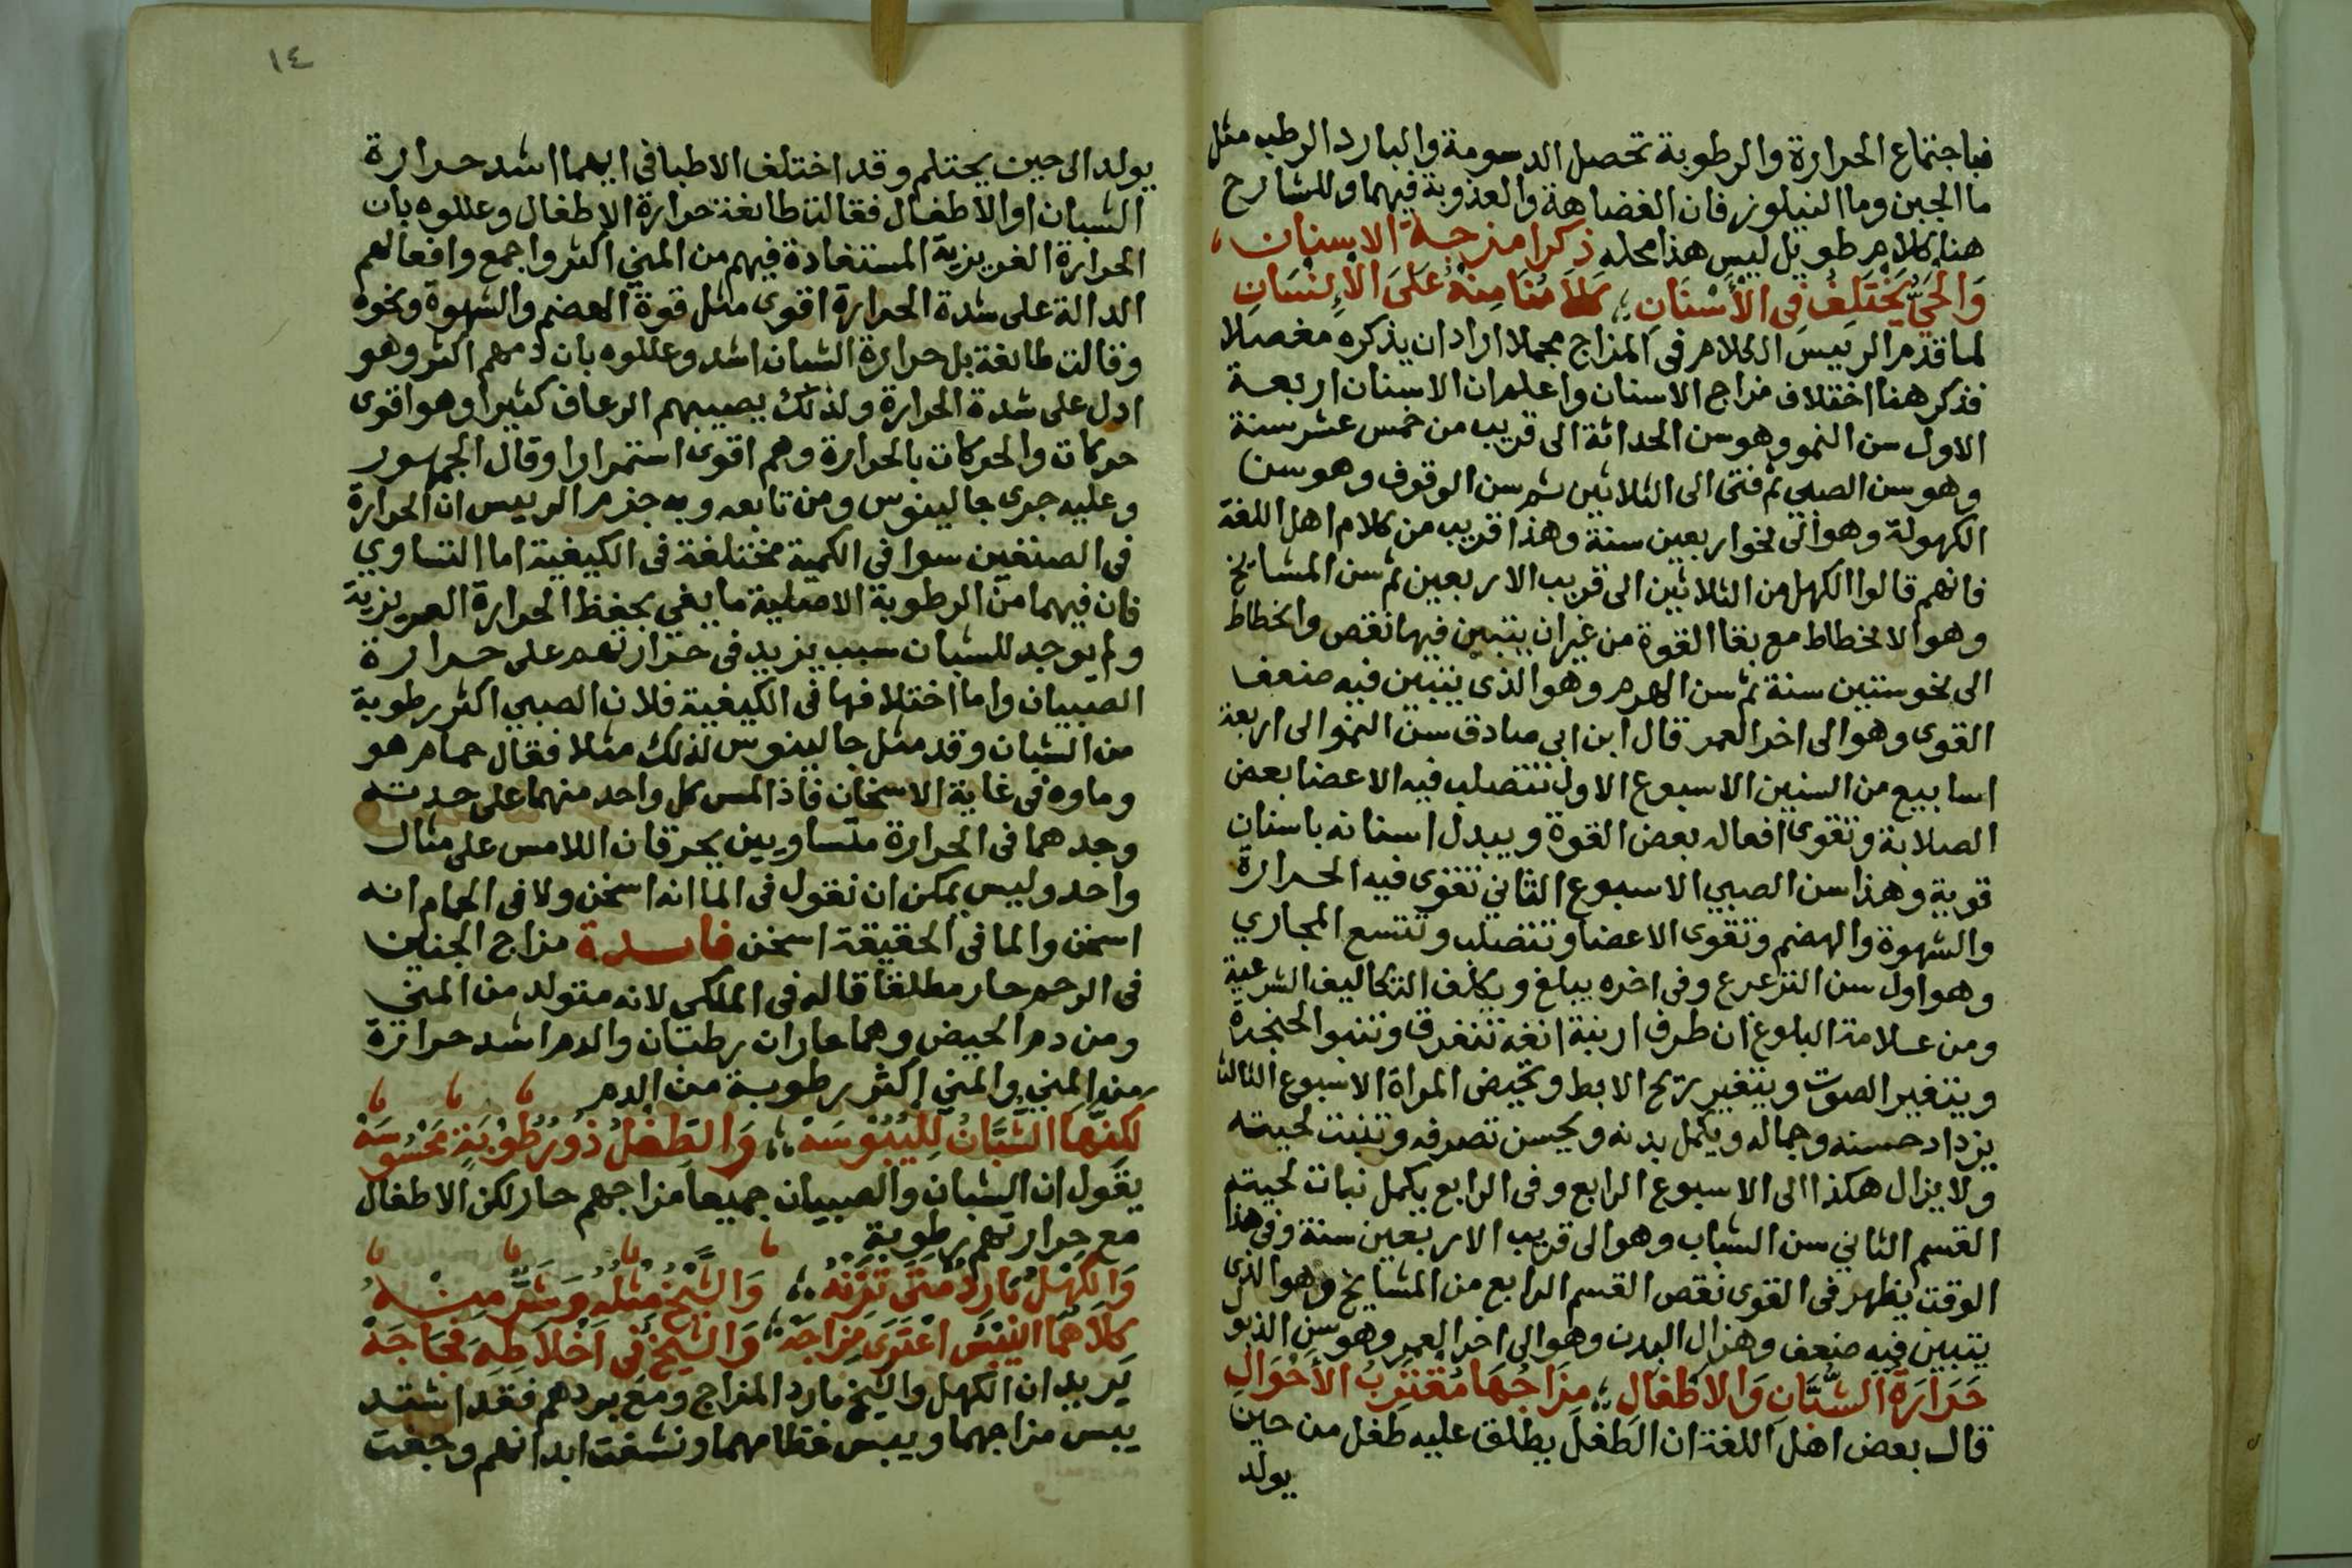 فباجتماع الحرارة والرطوبة تحصل الدسومة والبارد الرطب مثل
ما الجبن وما النيلوفر فان الغضاهة والعذوبة فيهما وللشارح
هنا كلام طويل ليس هذا محله ذكر امزجة الاسنان
وَالحَيُّ يَخْتَلِفُ فِي الأَسْنَانِ عَلَى الإِنْسَانِ
لما قدم الرييس الكلام في المزاج مجملا اراد ان يذكره مفصلا
فذكر هنا اختلاف مزاج الاسنان واعلم ان الاسنان اربعة
الاول سن النمو وهو سن الحداثة الى قريب من خمس عشر سنة
وهو سن الصبي ثم فتى الى الثلاثين ثم سن الوقوف وهو سن
الكهولة وهو الى نحو اربعين سنة وهذا قريب من كلام اهل اللغة
فانهم قالوا الكهل من الثلاثين الى قريب الاربعين ثم سن المشايخ
وهو الانحطاط مع بقا القوة من غير ان يتبين فيها نقص وانحطاط
الى نحو ستين سنة ثم سن الهرم وهو الذى يتبين فيه ضعف
القوى وهو الى اخر العمر قال ابن ابي صادق سن النمو الى اربعة
اسابيع من السنين الاسبوع الاول تتصلب فيه الاعضا بعض
الصلابة وتقوى افعاله بعض القوة ويبدل اسنانه باسنان
قوية وهذا سن الصبي الاسبوع الثاني تقوى فيه الحرارة
والشهوة والهضم وتقوى الاعضا وتتصلب وتتسع المجاري
وهو اول سن الترعرع وفى اخره يبلغ ويكلف التكاليف الشرعية
ومن علامة البلوغ ان طرف ارنبة انفه تتفرق وتنبو الحنجرة
ويتغير الصوت ويتغير ريح الابط وتحيض المراة الاسبوع الثالث
يزداد حسنه وجماله ويكمل بدنه ويحسن تصرفه وتنبت لحيته
ولا يزال هكذا الى الاسبوع الرابع وفى الرابع يكمل نبات لحيته
القسم الثاني سن الشباب وهو الى قريب الاربعين سنة وفى هذا
الوقت يظهر فى القوى نقص القسم الرابع من المشايخ وهو الذى
يتبين فيه ضعف وهزال البدن وهو الى اخر العمر وهو سن الذبو
حَرَارَةُ الشُّبَّانِ وَالأَطْفَالِ مِزَاجُهَا مُقْتَرِبُ الأَحْوَالِ
قال بعض اهل اللغة ان الطفل يطلق عليه طفل من حين
يولد
١٤
يولد الى حين يحتلم وقد اختلف الاطبا فى ايهما اشد حرارة
الشبان او الاطفال فقالت طائفة حرارة الاطفال وعللوه بان
الحرارة الغريزية المستفادة فيهم من المني اكثر واجمع وافعالهم
الدالة على شدة الحرارة اقوى مثل قوة الهضم والشهوة ونحوه
وقالت طائفة بل حرارة الشبان اشد وعللوه بان دمهم اكثر وهو
ادل على شدة الحرارة ولذلك يصيبهم الرعاف كثيرا وهو اقوى
حركات والحركات بالحرارة وهم اقوى استمرارا وقال الجمهور
وعليه جرى جالينوس ومن تابعه وبه جزم الرييس ان الحرارة
فى الصنفين سوا فى الكمية مختلفة فى الكيفية اما التساوي
فان فيهما من الرطوبة الاصلية ما يفي بحفظ الحرارة الغريزية
ولم يوجد للشبان سبب يزيد فى حرارتهم على حرارة
الصبيان واما اختلافها فى الكيفية فلان الصبي اكثر رطوبة
من الشبان وقد مثل جالينوس لذلك مثلا فقال حمام هو
وماوه فى غاية الاسخان فاذا لمس كل واحد منهما على حدته
وجدهما فى الحرارة متساويين يحرقان اللامس على مثال
واحد وليس يمكن ان نقول فى الما انه اسخن ولا فى الحمام انه
اسخن والما فى الحقيقة اسخن فايدة مزاج الجنين
فى الرحم حار مطلقا قاله فى الملكي لانه متولد من المني
ومن دم الحيض وهما حاران رطبان والدم اشد حرارة
من المني والمني اكثر رطوبة من الدم
لَكِنَّهَا الشُّبَّانُ لِلْيُبُوسَهْ وَالطِّفْلُ ذُو رُطُوبَةٍ مَحْسُوسَهْ
يقول ان الشبان والصبيان جميعا مزاجهم حار لكن الاطفال
مع حرارتهم رطوبة
وَالكَهْلُ بَارِدٌ مَتَى تَزِنْهُ وَالشَّيْخُ مِثْلُهُ وَشَرٌّ مِنْهُ
كِلَاهُمَا اليُبْسُ اعْتَرَى مِزَاجَهْ وَالشَّيْخُ فِي أَخْلَاطِهِ فَجَاجَهْ
يريد ان الكهل والشيخ باردا المزاج ومع بردهم فقد اشتد
يبس مزاجهما ويبس عظامهما ونشفت ابدانهم وجفت